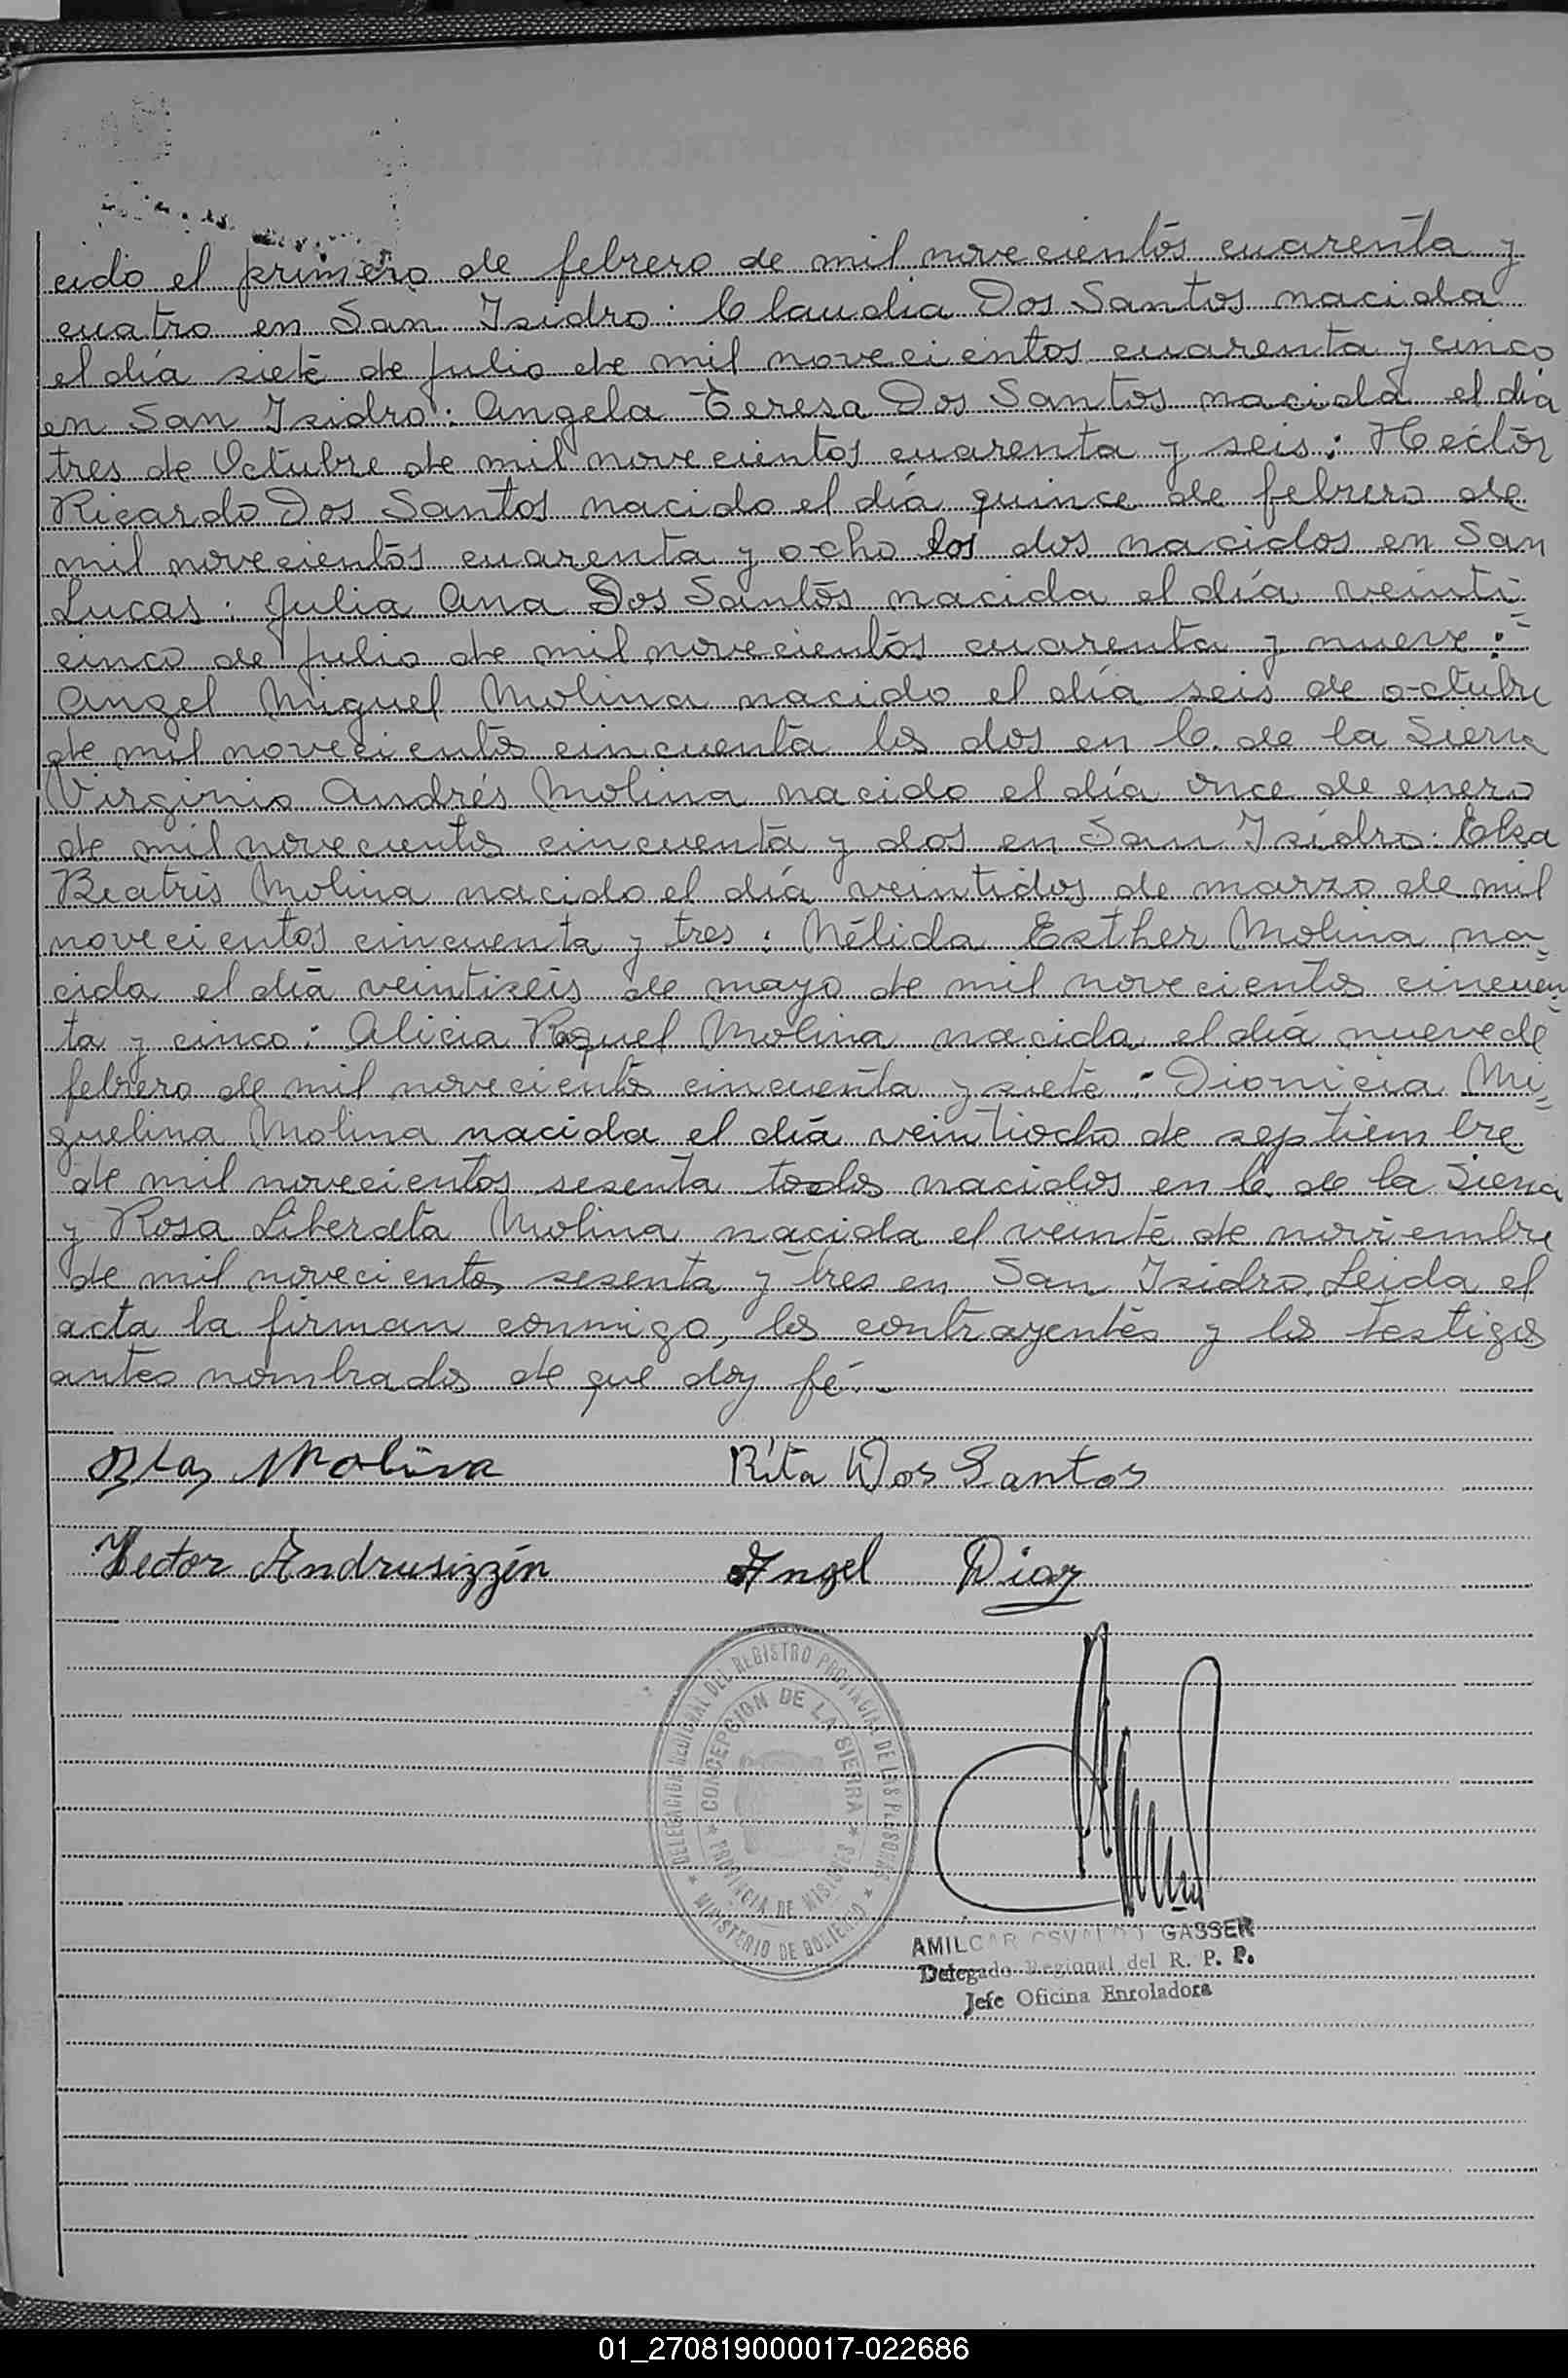 cido el primero de febrero de mil novecientos cuarenta y
cuatro en San Isidro: Claudia Dos Santos nacida
el día siete de julio de mil novecientos cuarenta y cinco
en San Isidro: Angela Teresa Dos Santos nacida el día
tres de Octubre de mil novecientos cuarenta y seis: Hector
Ricardo Dos Santos nacido el día quince de febrero de
mil novecientos cuarenta y ocho los dos nacidos en San
Lucas: Julia Ana Dos Santos nacida el día veinti=
cinco de julio de mil novecientos cuarenta y nueve:
Angel Miguel Molina nacido el día seis de octubre
de mil novecientos cincuenta los dos en C. de la Sierra
Virginio Andrés Molina nacido el día once de enero
de mil novecientos cincuenta y dos en San Isidro: Elsa
Beatris Molina nacido el día veintidos de marzo de mil
novecientos cincuenta y tres: Nélida Esther Molina na=
cida el día veintiseis de mayo de mil novecientos cincuen=
ta y cinco: Alicia Raquel Molina nacida el día nueve de
febrero de mil novecientos cincuenta y siete: Dionicia Mi=
guelina Molina nacida el día veintiocho de septiembre
de mil novecientos sesenta todos nacidos en C. de la Sierra
y Rosa Liberata Molina nacida el veinte de noviembre
de mil novecientos sesenta y tres en San Isidro. Leida el
acta la firman conmigo, los contrayentes y los testigos
antes nombrados de que doy fé.-
Blas Molina Rita Dos Santos
Hector Andrusizzén Angel Diaz
DELEGACION REGIONAL DEL REGISTRO PROVINCIAL DE LAS PERSONAS
CONCEPCION DE LA SIERRA
PROVINCIA DE MISIONES
MINISTERIO DE GOBIERNO
AMILCAR OSVALDO GASSER
Delegado Regional del R. P. P.
Jefe Oficina Enroladora
01_270819000017-022686